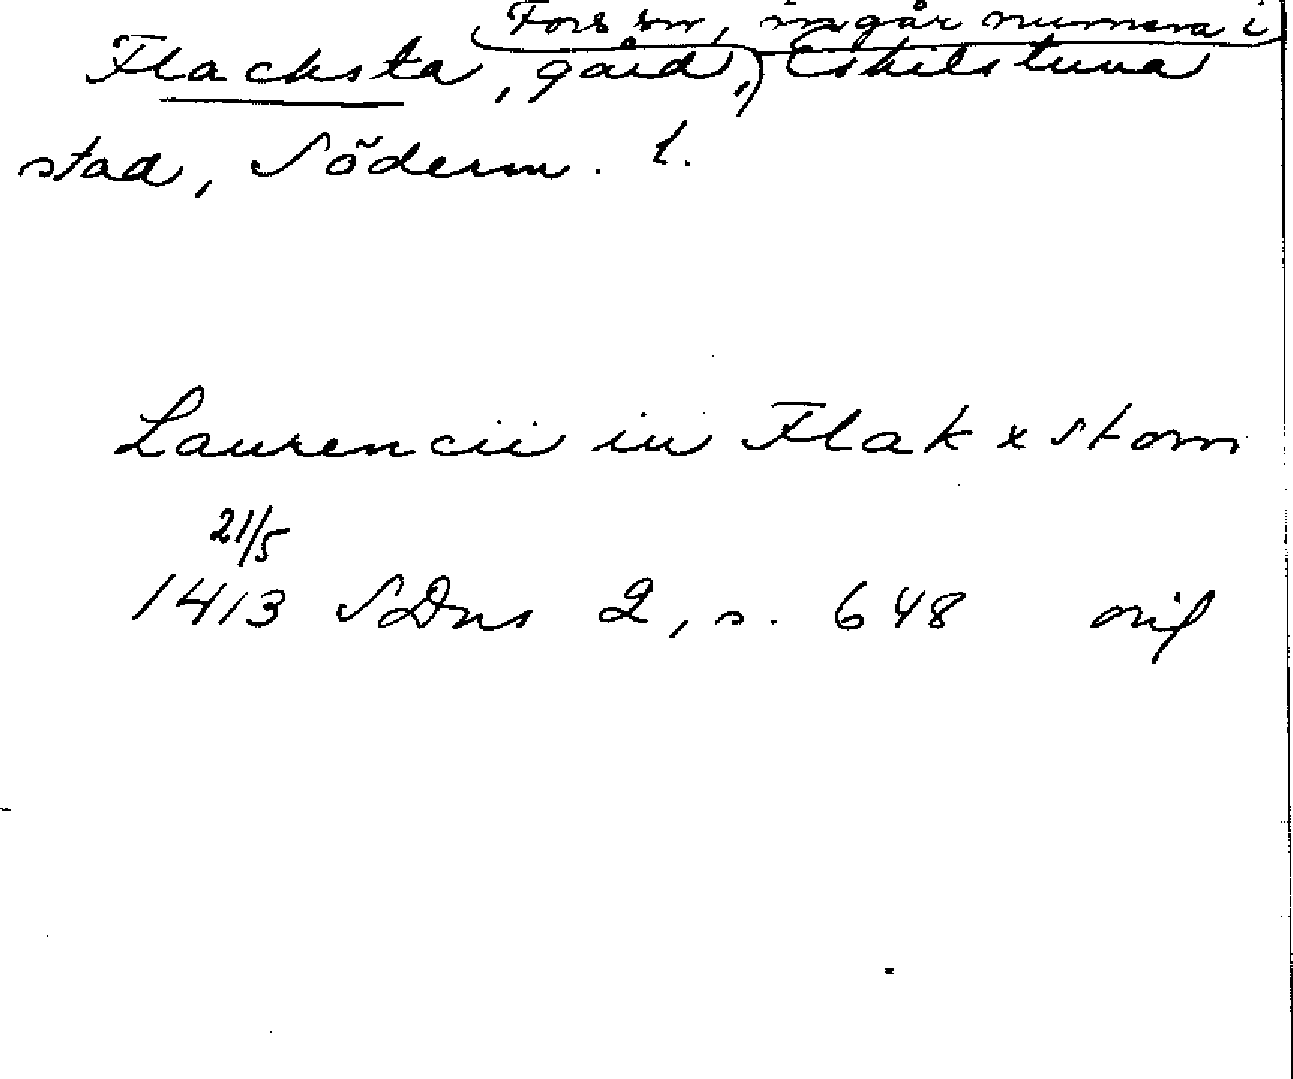 Fors sn, ingår numera i
Flacksta, gård, Eskilstuna
stad, Söderm. l.
Laurencii in Flakxstom
21/5
1413 SDns 2, s. 648 orig